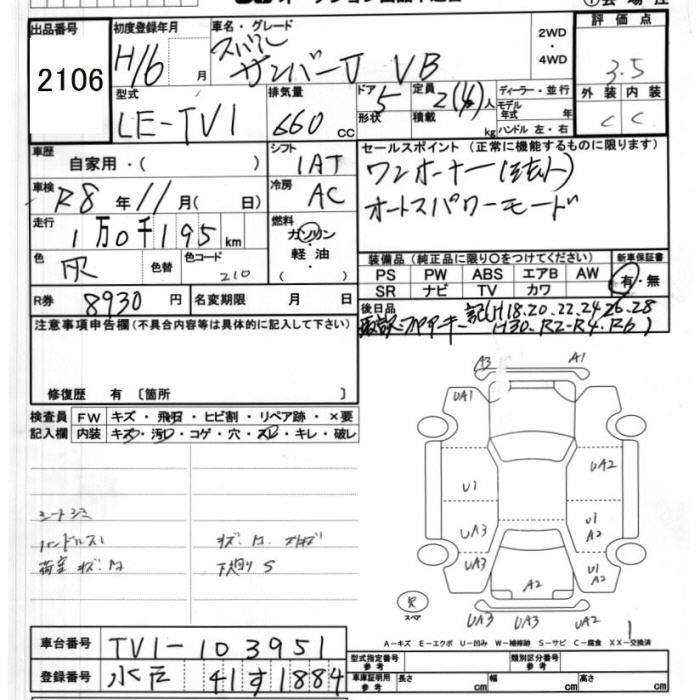 出品番号 2106
初度登録年月 H16 月
車名・グレード スバル サンバーV VB
2WD ・ 4WD
評価点 3.5
外装 C 内装 C
型式 LE-TV1
排気量 660 CC
ドア 5 形状
定員 2(4)人 積載 kg
ディーラー・並行
モデル年式 年
ハンドル 左・右
車歴 自家用・( )
シフト 1AT
車検 R8 年 11 月( 日)
冷房 AC
走行 1万0千195 km
燃料 ガソリン 軽油 ( )
色 灰 色替 色コード 210
R券 8930 円 名変期限 月 日
セールスポイント(正常に機能するものに限ります)
ワンオーナー
オートスパワーモード
装備品(純正品に限り○をつけてください)
新車保証書 有・無
PS PW ABS エアB AW
SR ナビ TV カワ
後日品
記(H18.20.22.24.26.28
H30.R2-R4.R6)
注意事項申告欄(不具合内容等は具体的に記入して下さい)
修復歴 有〔箇所 〕
検査員記入欄
FW キズ・飛石・ヒビ割・リペア跡・×要
内装 キズ・汚レ・コゲ・穴・スレ・キレ・破レ
シートシミ
ハンドルスレ
荷室キズ・
下廻りS
A3 A1
UA1
UA2
U1
UA3
U1 A2
UA3
U1 A2
A2
UA3 UA3 UA2
スペア
A-キズ E-エクボ U-凹み W-補修跡 S-サビ C-腐食 XX-交換済
車台番号 TV1-103951
登録番号 水戸 41す1884
型式指定番号 参考
類別区分番号 参考
車庫証明用 参考
長さ cm 幅 cm 高さ cm